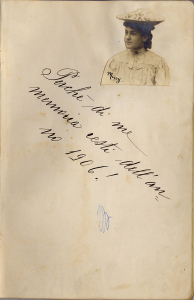 Mary
Perchè di me
memoria resti dell'an-
no 1906!